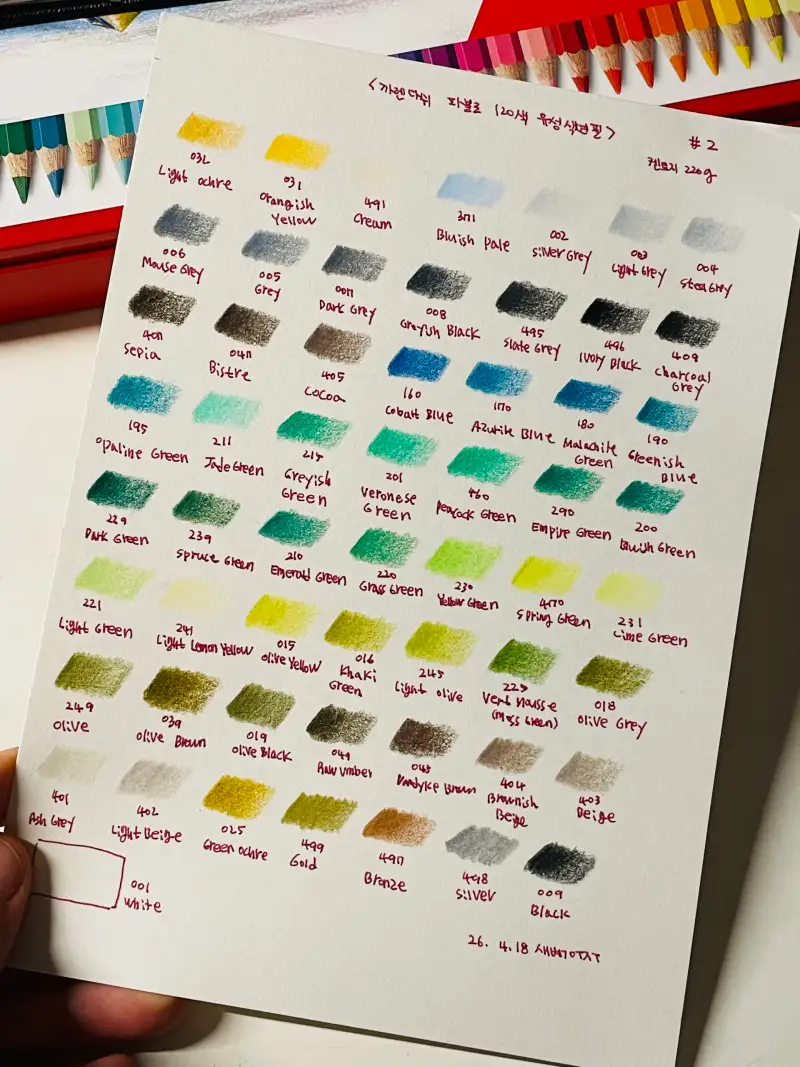 <까렌다쉬 파블로 120색 유성색연필>
#2
켄트지 220g
032
Light ochre
031
Orangish
Yellow
491
Cream
371
Bluish Pale
002
Silver Grey
003
Light Grey
004
Steal Grey
006
Mouse Grey
005
Grey
007
Dark Grey
008
Greyish Black
495
Slate Grey
496
Ivory Black
409
Charcoal
Grey
407
Sepia
047
Bistre
405
Cocoa
160
Cobalt Blue
170
Azurite Blue
180
Malachite
Green
190
Greenish
Blue
195
Opaline Green
211
Jade Green
215
Greyish
Green
201
Veronese
Green
460
Peacock Green
290
Empire Green
200
Bluish Green
229
Dark Green
239
Spruce Green
210
Emerald Green
220
Grass Green
230
Yellow Green
470
Spring Green
231
Lime Green
221
Light Green
241
Light Lemon Yellow
015
Olive Yellow
016
Khaki
Green
245
Light olive
225
Vert Mousse
(Moss Green)
018
Olive Grey
249
Olive
039
Olive Brown
019
Olive Black
049
Raw umber
045
Vandyke Brown
404
Brownish
Beige
403
Beige
401
Ash Grey
402
Light Beige
025
Green ochre
499
Gold
497
Bronze
498
Silver
009
Black
001
White
26. 4.18 새벽